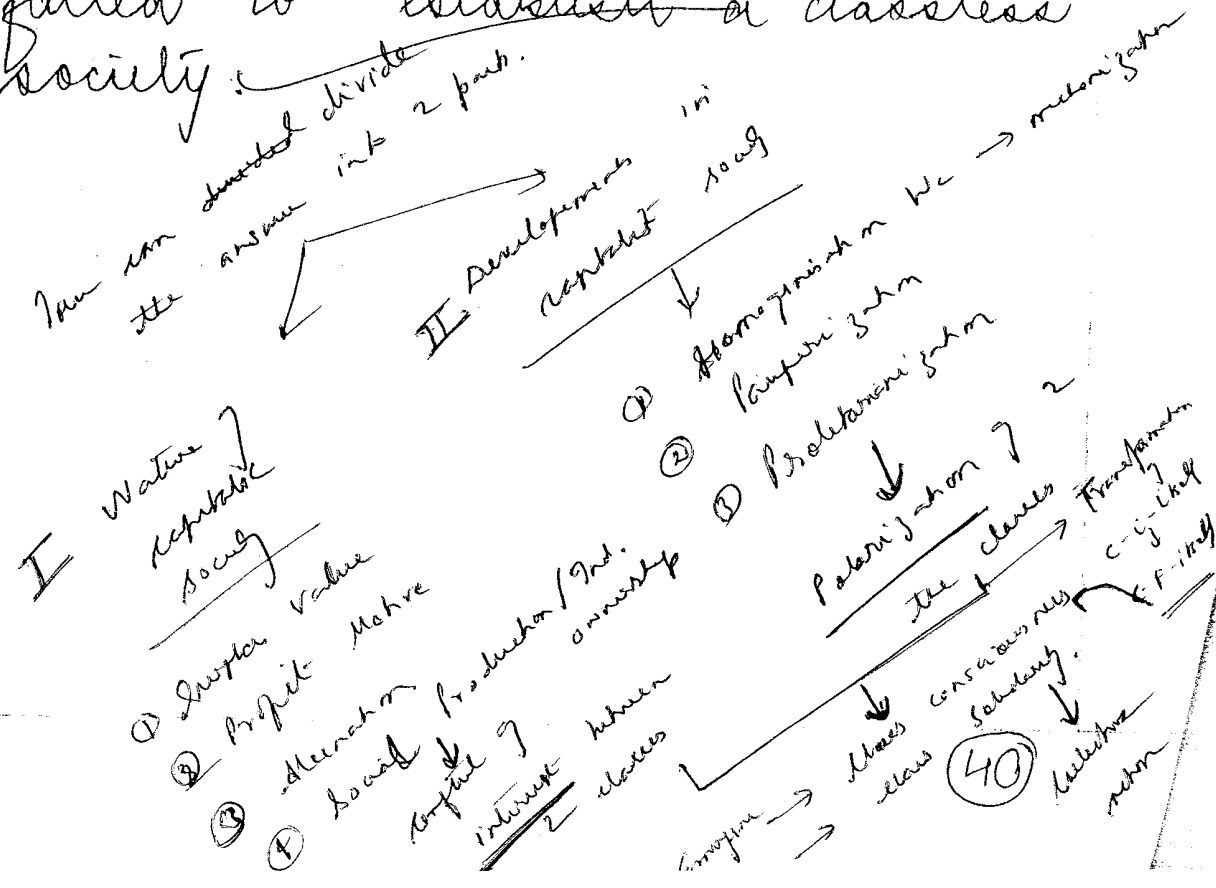 to establish a classless
society.
You can divided divide
the answer into 2 parts.
I Nature of
capitalist
society
① Surplus Value
② Profit Motive
③ Alienation
④ Social Production / Ind.
ownership
conflict of
interest between
2 classes
II. Developments in
capitalist society
① Homogenisation WC →
② Pauperization
③ Proletarianization
Polarization of 2
the classes
Transformation
of
C-i-itself
C-F-itself
→
→ class consciousness
class solidarity.
Collective
action
40